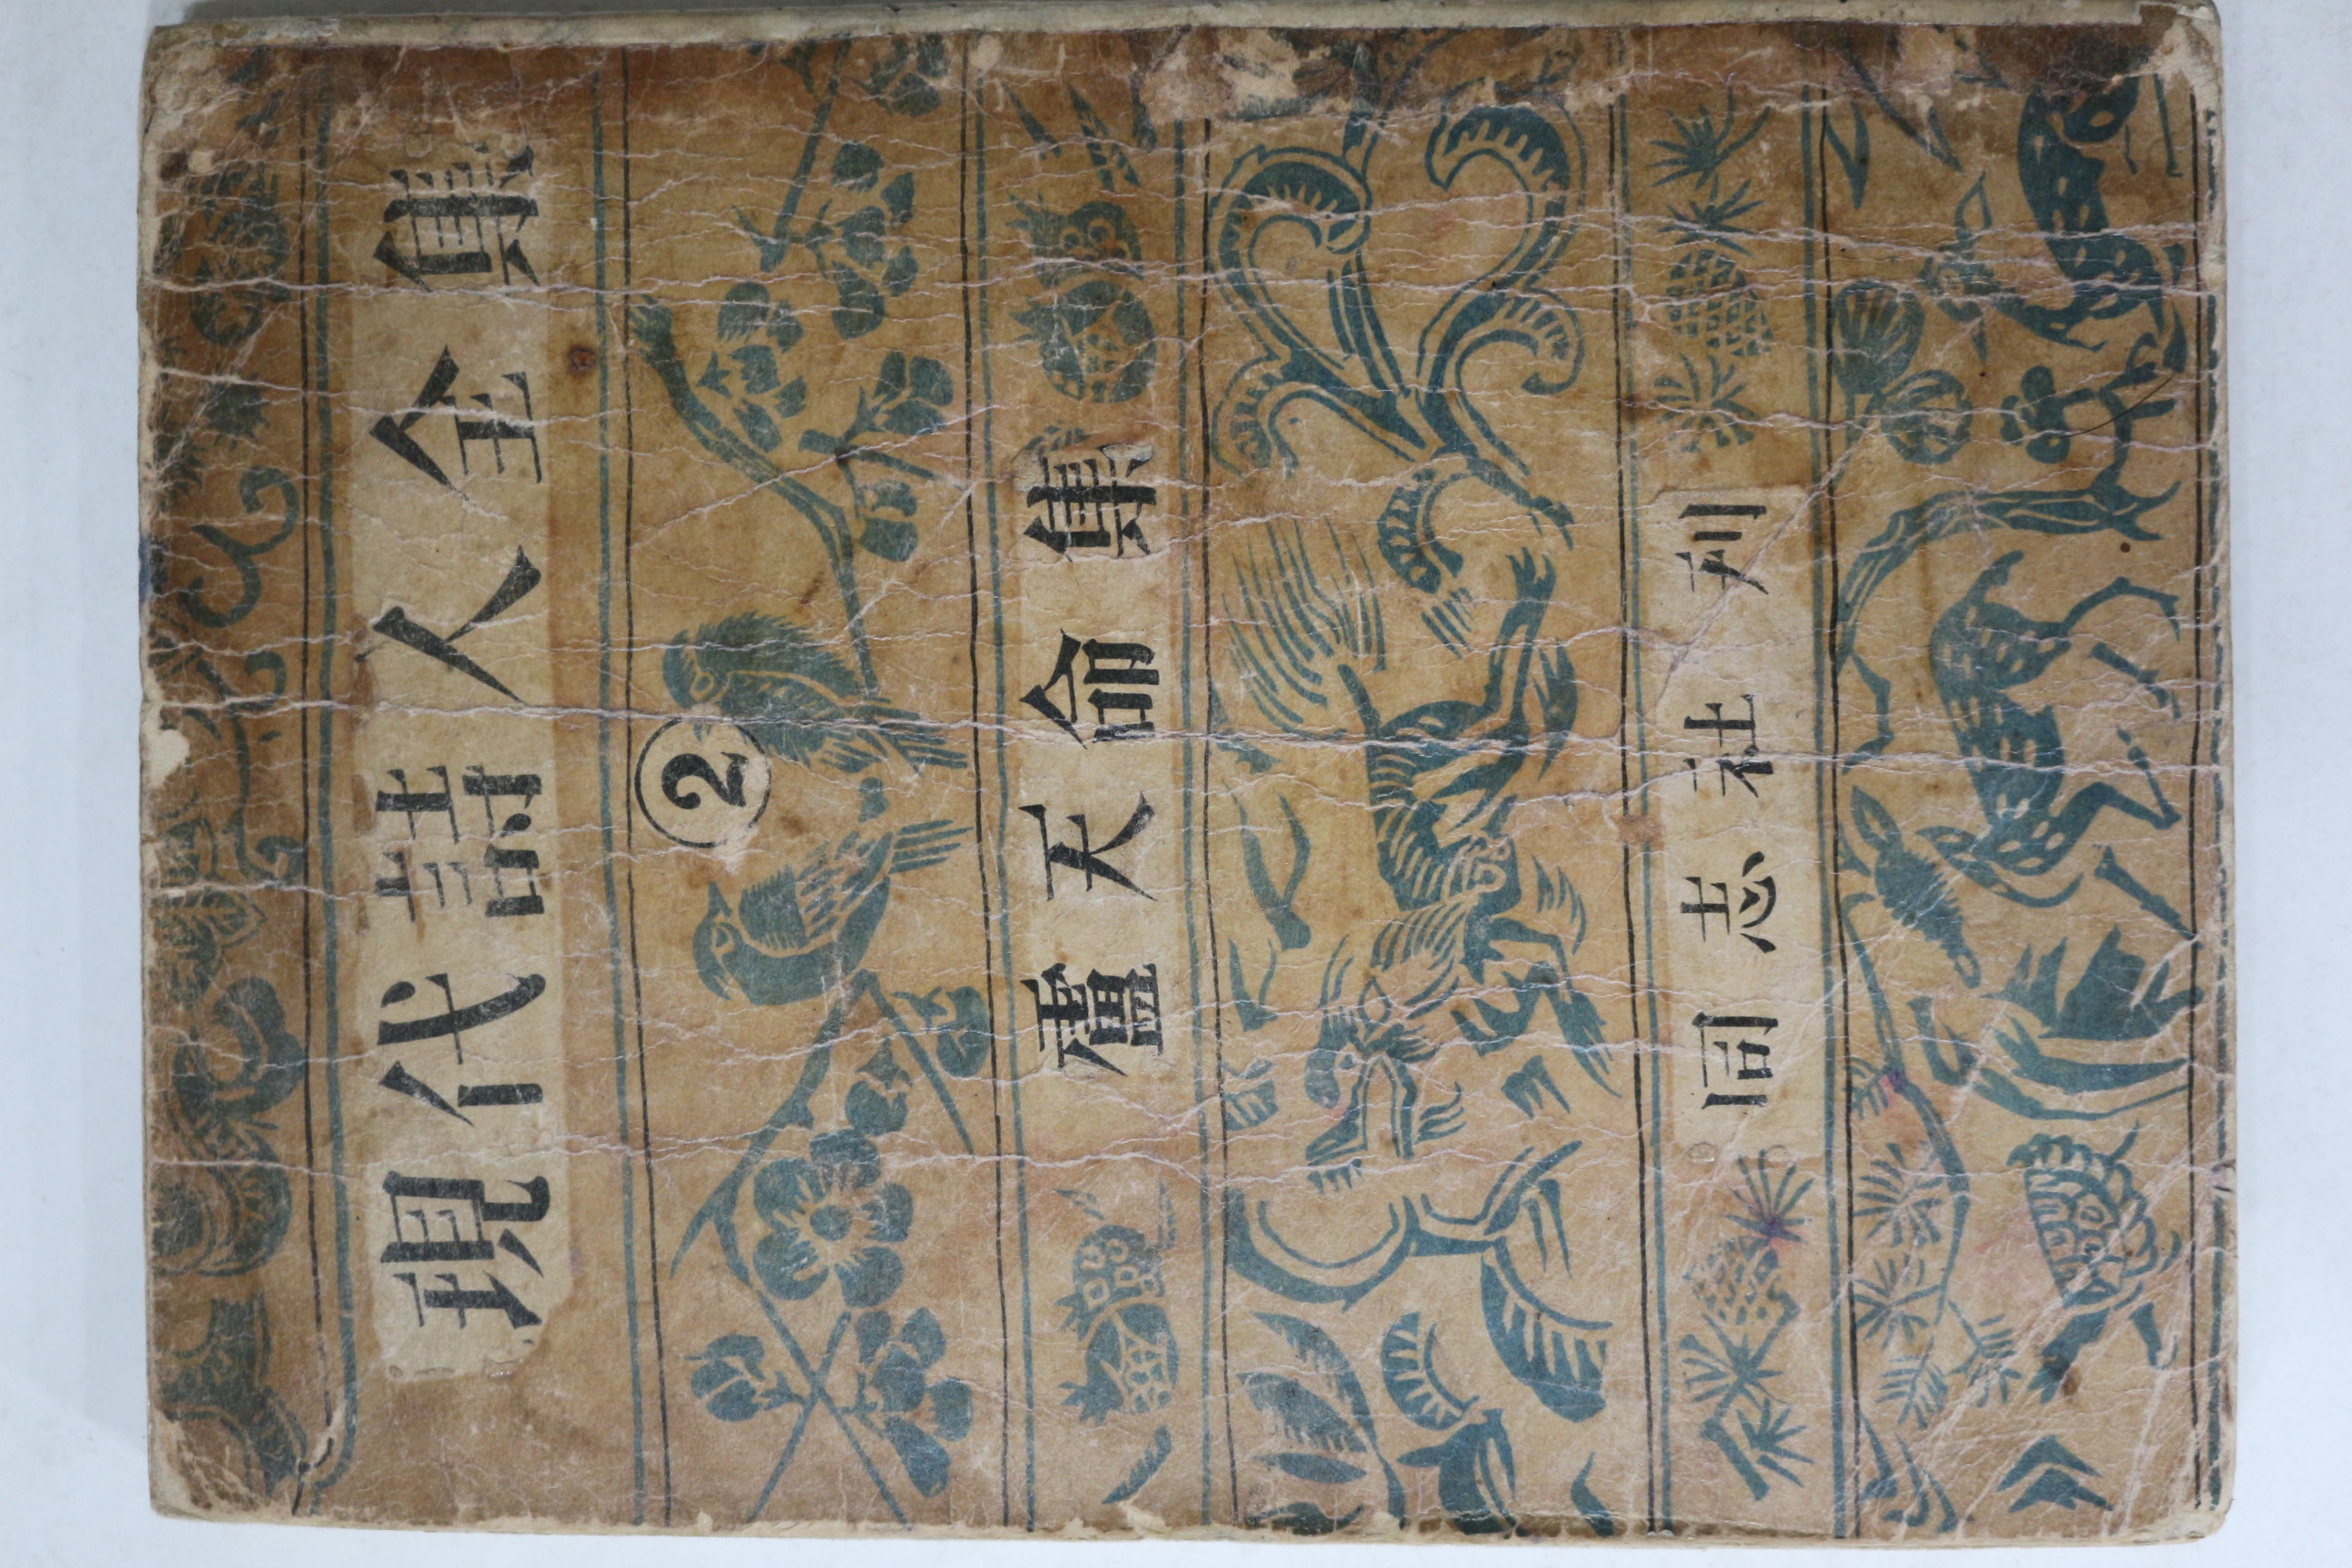 現代詩人全集
2
盧天命集
同志社 刊